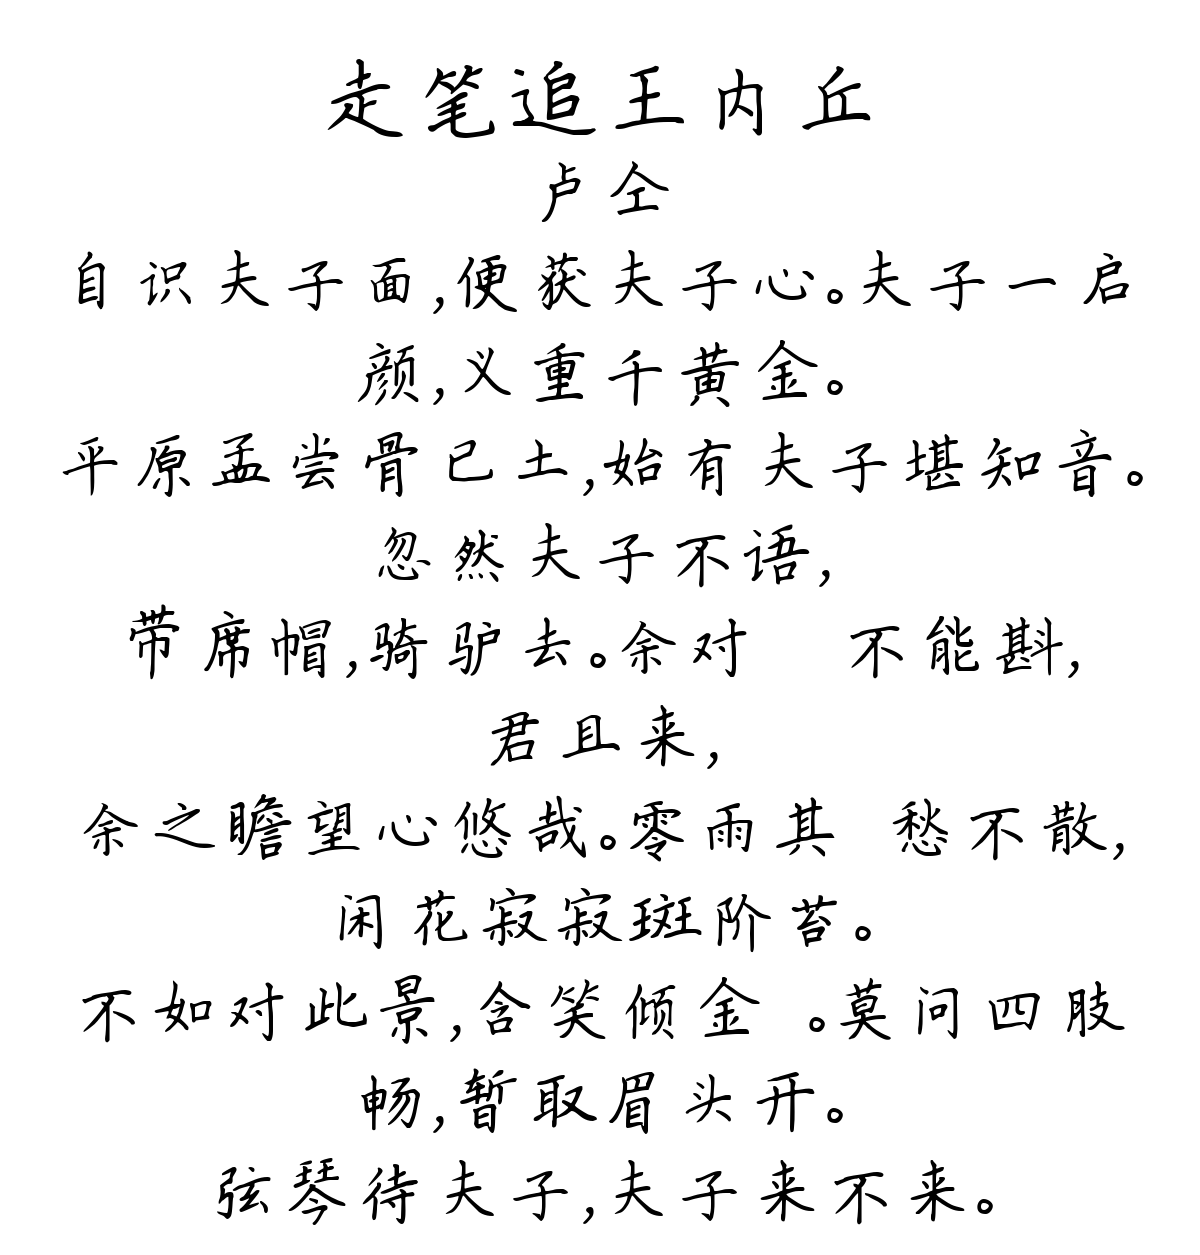 走笔追王内丘
卢仝
自识夫子面,便获夫子心。夫子一启
颜,义重千黄金。
平原孟尝骨已土,始有夫子堪知音。
忽然夫子不语,
带席帽,骑驴去。余对 不能斟,
君且来,
余之瞻望心悠哉。零雨其 愁不散,
闲花寂寂斑阶苔。
不如对此景,含笑倾金 。莫问四肢
畅,暂取眉头开。
弦琴待夫子,夫子来不来。